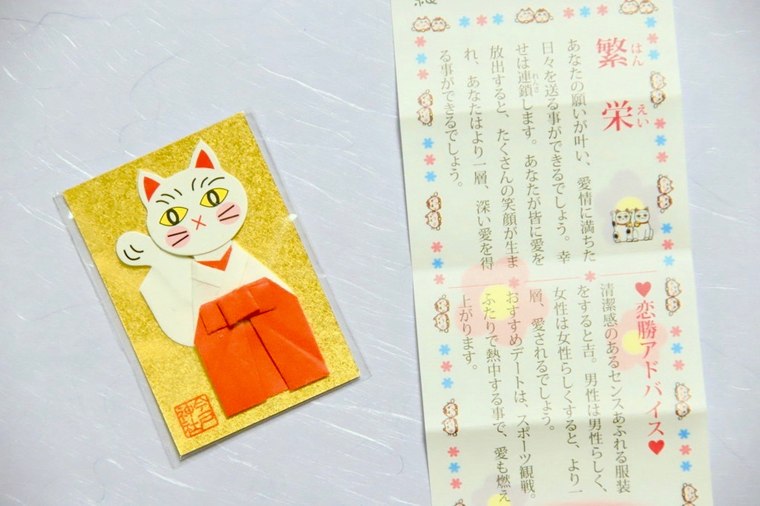 繁栄
はんえい
あなたの願いが叶い、愛情に満ちた
日々を送る事ができるでしょう。幸
せは連鎖します。あなたが皆に愛を
れんさ
放出すると、たくさんの笑顔が生ま
れ、あなたはより一層、深い愛を得
る事ができるでしょう。
♥恋勝アドバイス♥
清潔感のあるセンスあふれる服装
をすると吉。男性は男性らしく、
女性は女性らしくすると、より一
層、愛されるでしょう。
おすすめデートは、スポーツ観戦。
ふたりで熱中する事で、愛も燃え
上がります。
今戸神社